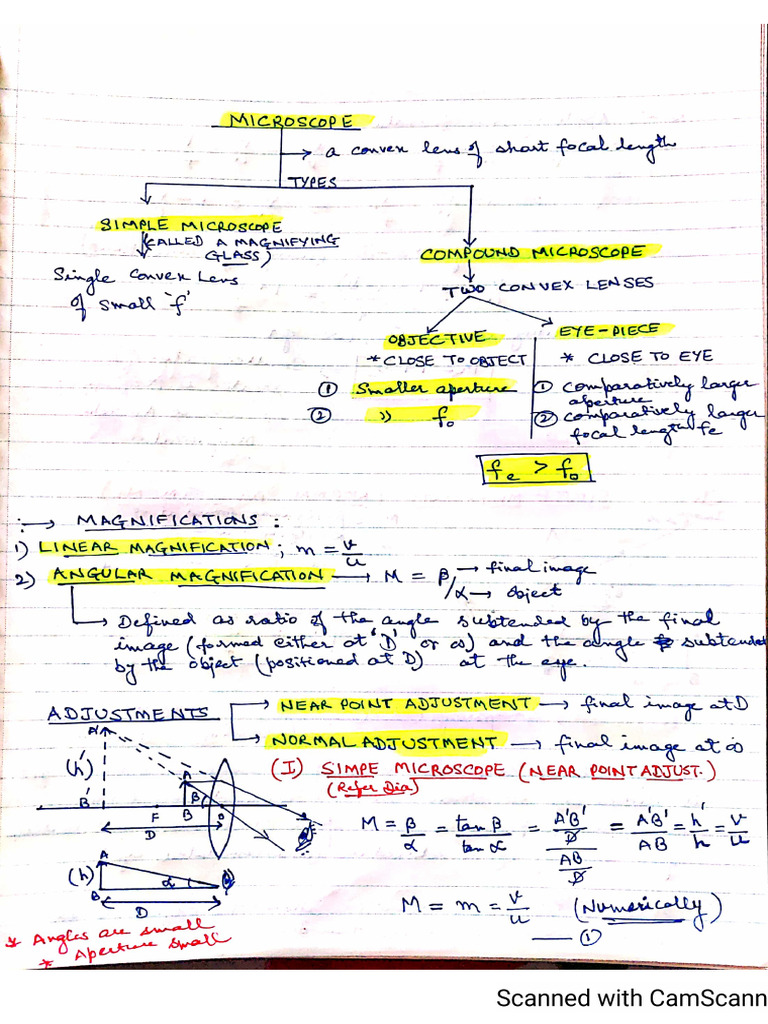 MICROSCOPE
→ a convex lens of short focal length
TYPES
SIMPLE MICROSCOPE
(CALLED A MAGNIFYING
GLASS)
Single Convex Lens
of small 'f'
COMPOUND MICROSCOPE
TWO CONVEX LENSES
OBJECTIVE
* CLOSE TO OBJECT
① Smaller aperture
② " f₀
EYE-PIECE
* CLOSE TO EYE
① comparatively larger
aperture
② comparatively larger
focal length fe
fe > f₀
:→ MAGNIFICATIONS :
1) LINEAR MAGNIFICATION ; m = v/u
2) ANGULAR MAGNIFICATION → M = β/α → final image
→ object
→ Defined as ratio of the angle subtended by the final
image (formed either at 'D' or ∞) and the angle subtended
by the object (positioned at D) at the eye.
ADJUSTMENTS → NEAR POINT ADJUSTMENT → final image at D
→ NORMAL ADJUSTMENT → final image at ∞
(I) SIMPE MICROSCOPE (NEAR POINT ADJUST.)
(Refer Dia)
A'
(h')
A
B'
F
B
β
O
D
M = β/α = tan β/tan α = (A'B'/D)/(AB/D) = A'B'/AB = h'/h = v/u
A
(h)
B
α
D
M = m = v/u (Numerically)
— ①
* Angles are small
* Aperture small
Scanned with CamScann